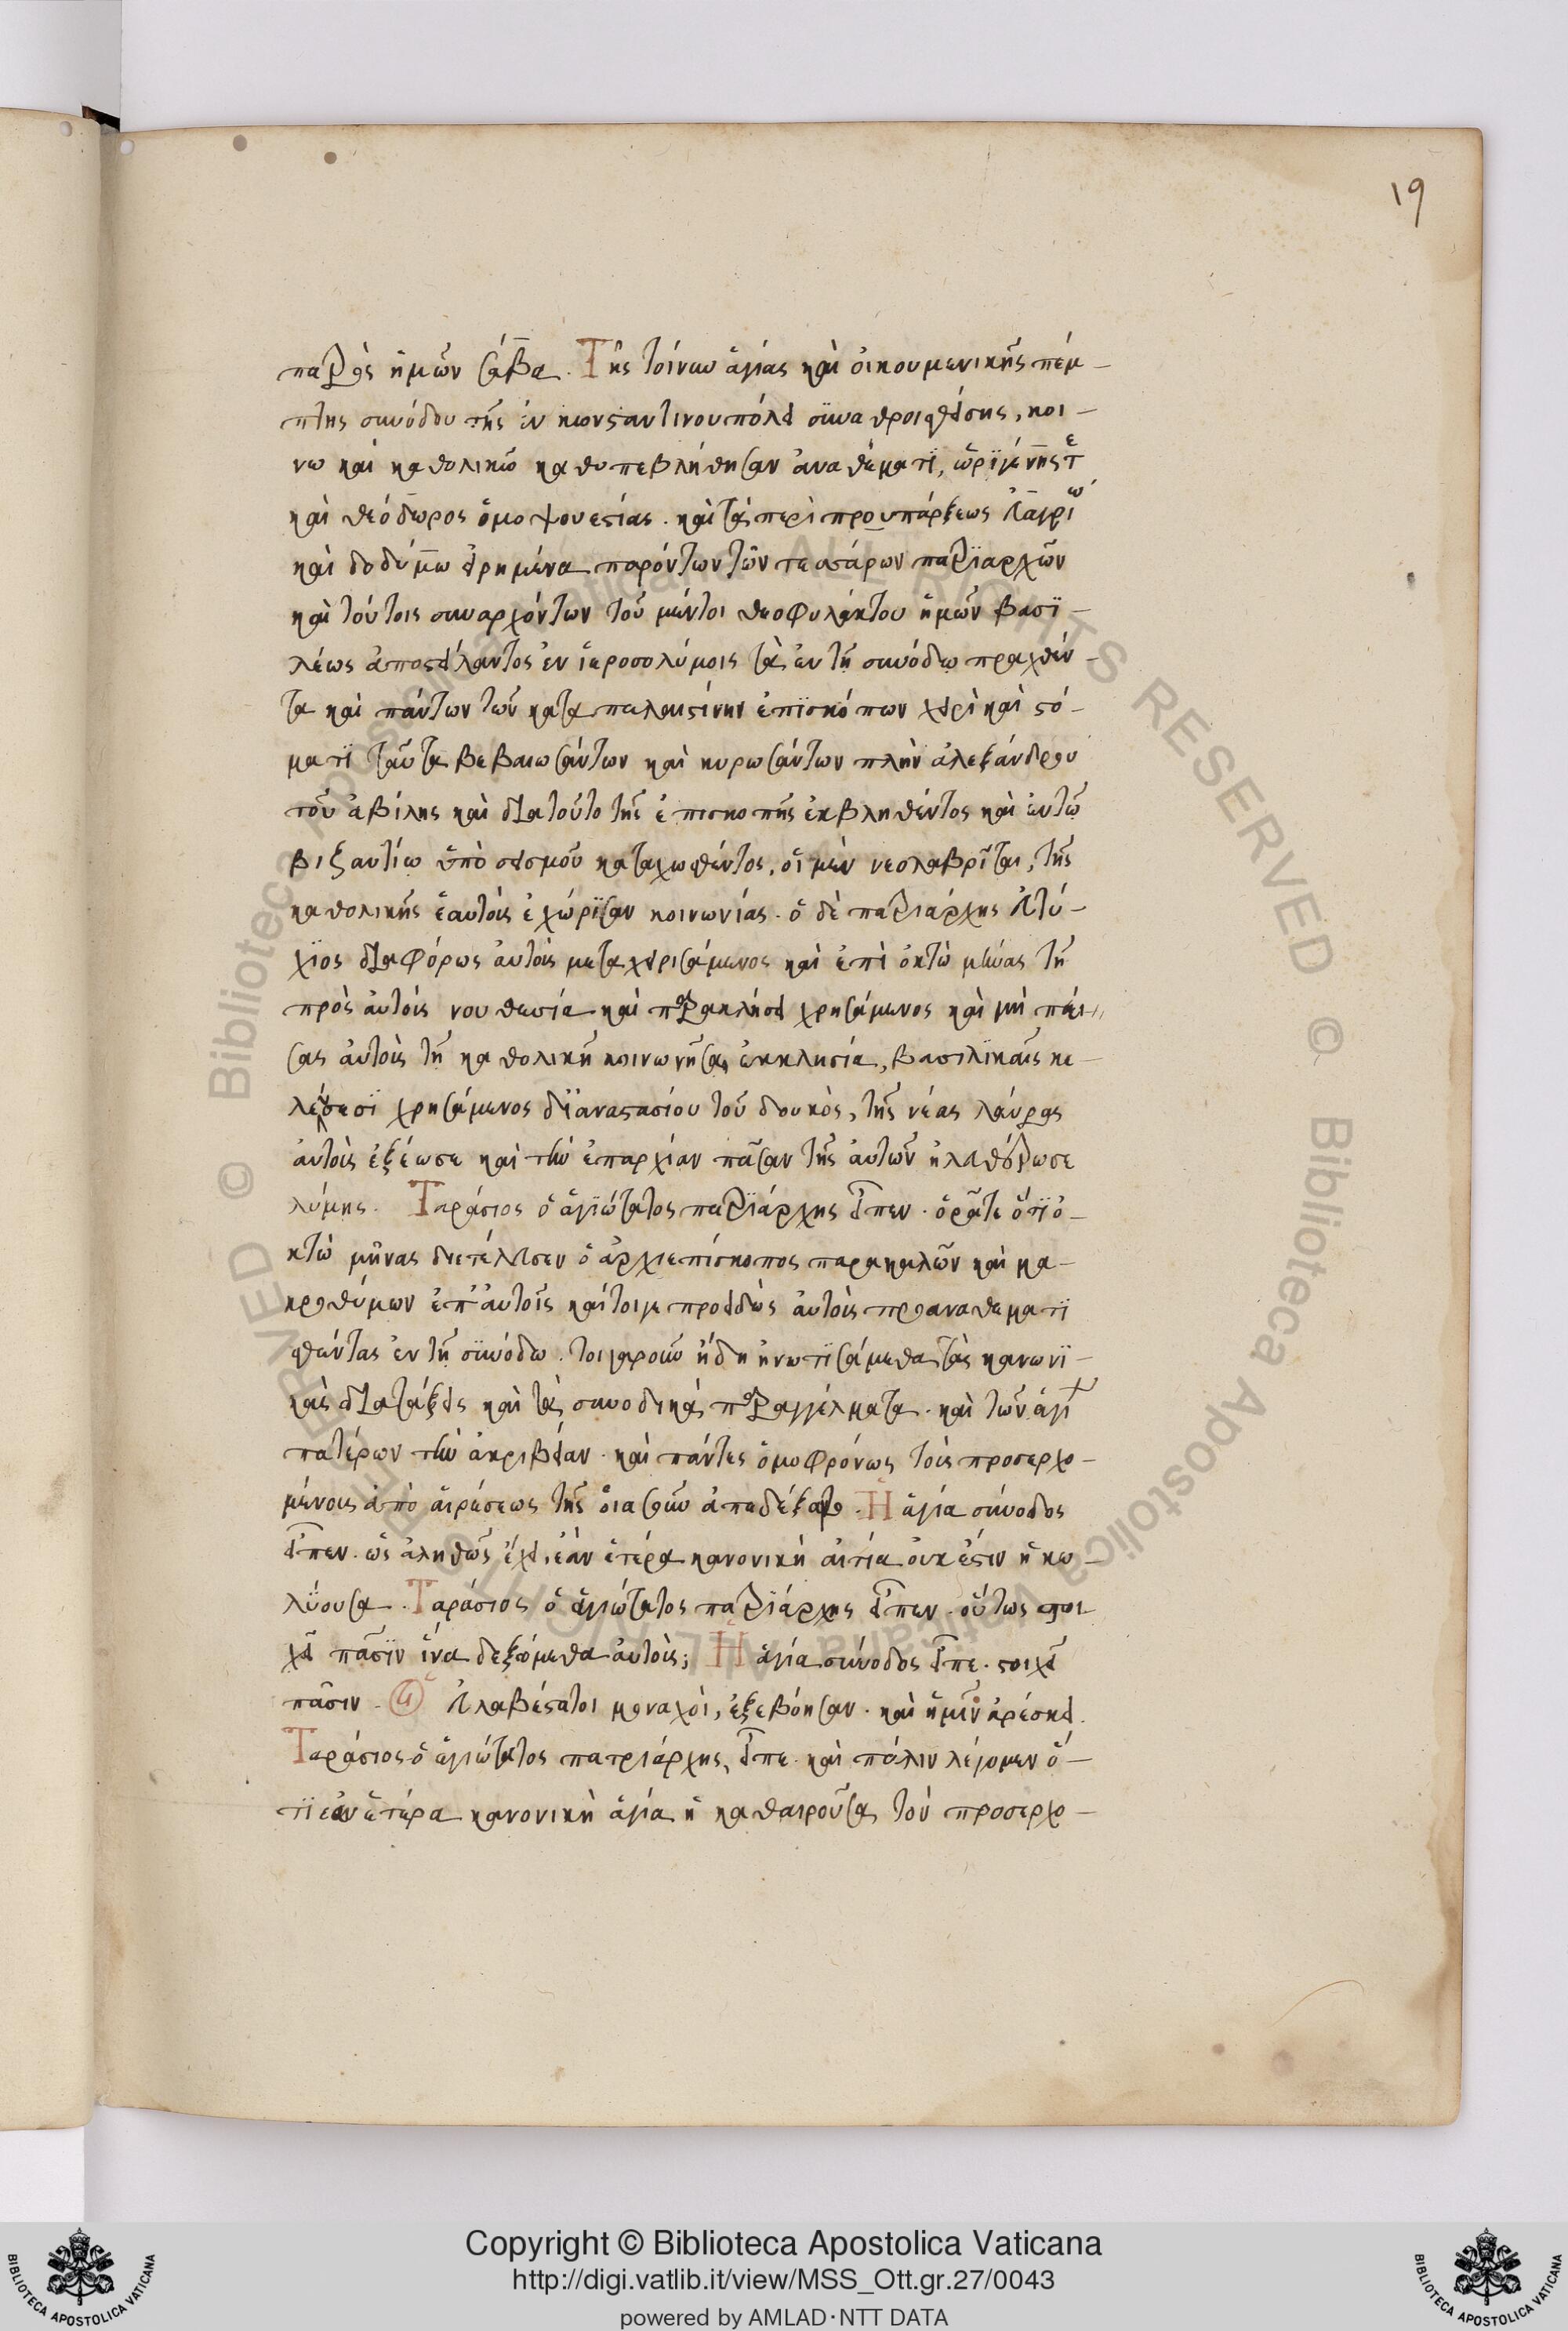 19
πατρὸς ἡμῶν σάβα. Τῆς τοίνυν ἁγίας καὶ οἰκουμενικῆς πέμ-
πτης συνόδου τῆς ἐν κωνσταντινουπόλει συναθροισθείσης, κοι-
νῶ καὶ καθολικῶ καθυπεβλήθησαν ἀναθέματι, ὠριγένης τε
καὶ θεόδωρος ὁ μοψουεστίας. καὶ τὰ περὶ προυπάρξεως εὐαγρίω
καὶ διδύμω εἰρημένα παρόντων τῶν τεσσάρων πατριαρχῶν
καὶ τούτοις συναρχόντων τοῦ μέντοι θεοφυλάκτου ἡμῶν βασι-
λέως ἀποστείλαντος ἐν ἱεροσολύμοις τὰ ἐν τῆ συνόδω πραχθέν-
τα καὶ πάντων τῶν κατα παλαιστίνην ἐπισκόπων χειρὶ καὶ στό-
ματι ταῦτα βεβαιωσάντων καὶ κυρωσάντων πλὴν ἀλεξάνδρου
τοῦ ἀβίλης καὶ διατοῦτο τῆς ἐπισκοπῆς ἐκβληθέντος καὶ ἐν τῶ
βιζαντίω ὑπὸ σεισμοῦ καταχωσθέντος, οἱ μὲν νεολαβρῖται, τῆς
καθολικῆς ἑαυτοὺς ἐχώρισαν κοινωνίας. ὁ δὲ πατριάρχης εὐτύ-
χιος διαφόρως αὐτοὺς μεταχειρισάμενος καὶ ἐπὶ ὀκτὼ μῆνας τῆ
πρὸς αὐτοὺς νουθεσία καὶ παρακλήσει χρησάμενος καὶ μὴ πεί-
σας αὐτοὺς τῆ καθολικῆ κοινωνῆσαι ἐκκλησία, βασιλικαῖς κε-
λεύσεσι χρησάμενος δι ἀναστασίου τοῦ δουκὸς, τῆς νέας λαύρας
αὐτοὺς ἐξέωσε καὶ τὴν ἐπαρχίαν πᾶσαν τῆς αὐτῶν ἠλευθέρωσε
λύμης. Ταράσιος ὁ ἁγιώτατος πατριάρχης εἶπεν. ὁρᾶτε ὅτι ὀ-
κτὼ μῆνας διετέλεσεν ὁ ἀρχιεπίσκοπος παρακαλῶν καὶ μα-
κροθύμων ἐπ' αὐτοῖς καίτοιγε προειδὼς αὐτοὺς προαναθεματι
σθέντας ἐν τῆ συνόδω. τοιγαροῦν ἤδη ἠνωτισάμεθα τὰς κανονι-
κὰς διατάξεις καὶ τὰ συνοδικὰ παραγγέλματα. καὶ τῶν ἁγίων
πατέρων τὴν ἀκρίβειαν. καὶ πάντες ὁμοφρόνως τοὺς προσερχο-
μένους ἀπὸ αἱρέσεως τῆς οἱασοῦν ἀπεδέξαντο. Ἡ ἁγία σύνοδος
εἶπεν. ὡς ἀληθῶς ἔχει, ἐὰν ἑτέρα κανονικὴ αἰτία οὐκ ἔστιν ἡ κω-
λύουσα. Ταράσιος ὁ ἁγιώτατος πατριάρχης εἶπεν. οὕτως στοι-
χεῖ πᾶσιν ἵνα δεξόμεθα αὐτοὺς; Ἡ ἁγία σύνοδος εἶπε. στοιχεῖ
πᾶσιν. Οἱ εὐλαβέστατοι μοναχοὶ, ἐξεβόησαν. καὶ ἡμῖν ἀρέσκει.
Ταράσιος ὁ ἁγιώτατος πατριάρχης, εἶπε. καὶ πάλιν λέγομεν ὅ-
τι ἐὰν ἑτέρα κανονικὴ ἁγία ἡ καθαιροῦσα τὸν προσερχο-
Copyright © Biblioteca Apostolica Vaticana
http://digi.vatlib.it/view/MSS_Ott.gr.27/0043
powered by AMLAD·NTT DATA
BIBLIOTECA APOSTOLICA VATICANA
BIBLIOTECA APOSTOLICA VATICANA